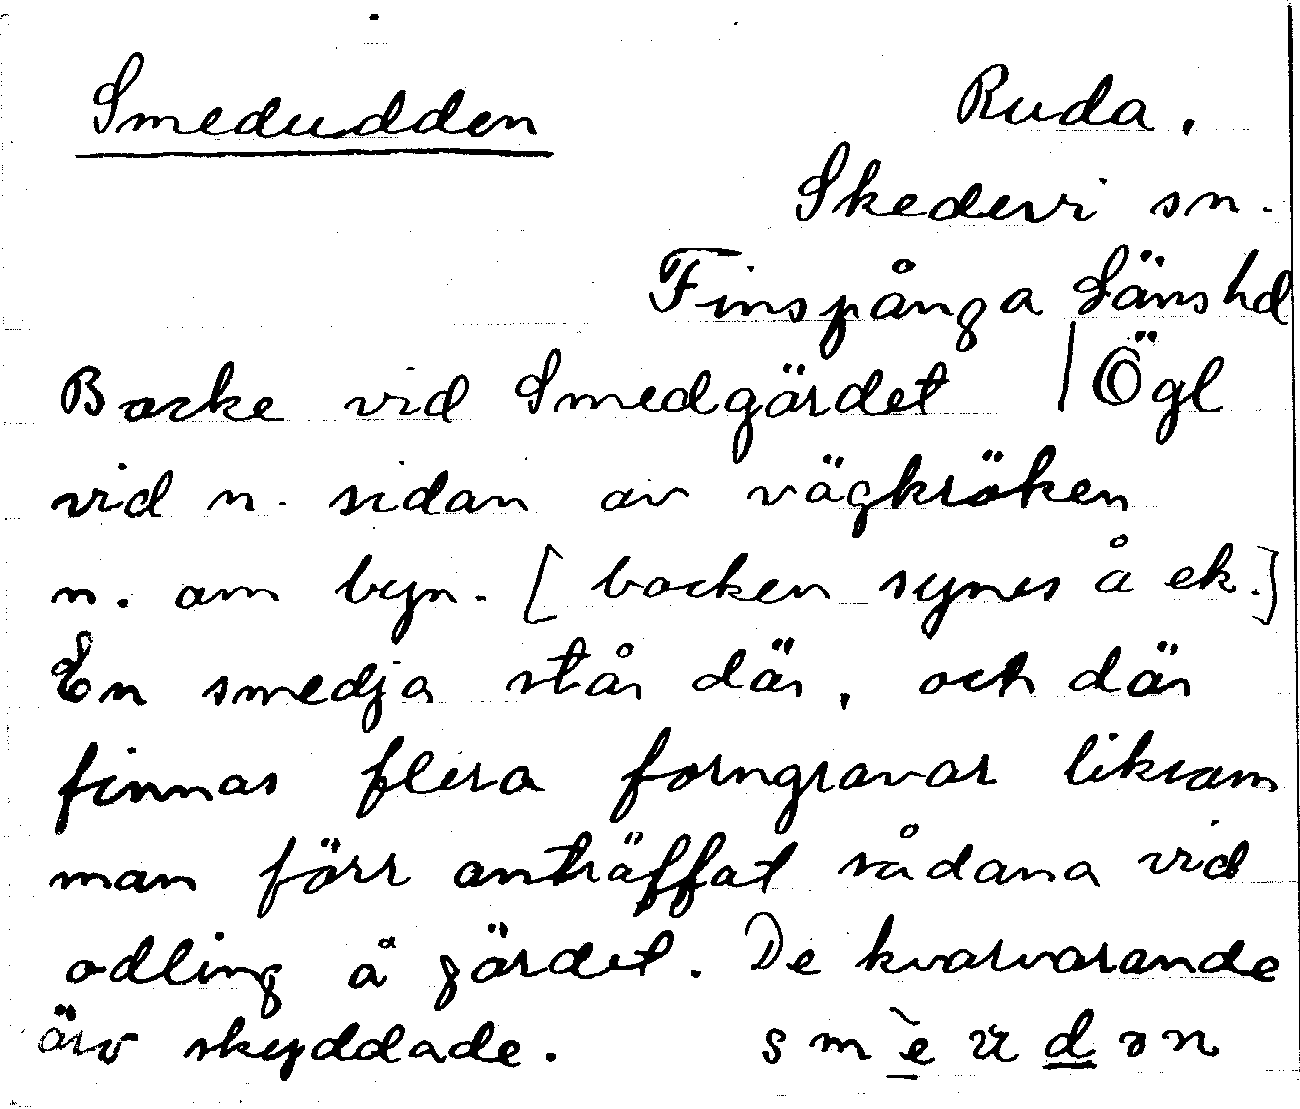 Smedudden Ruda.
Skedevi sn.
Finspånga Länshd
Backe vid Smedgärdet / Ögl
vid n. sidan av vägkröken
n. om byn. [backen synes å ek.]
En smedja står där, och där
finnas flera forngravar liksom
man förr anträffat sådana vid
odling å gärdet. De kvarvarande
äro skyddade.